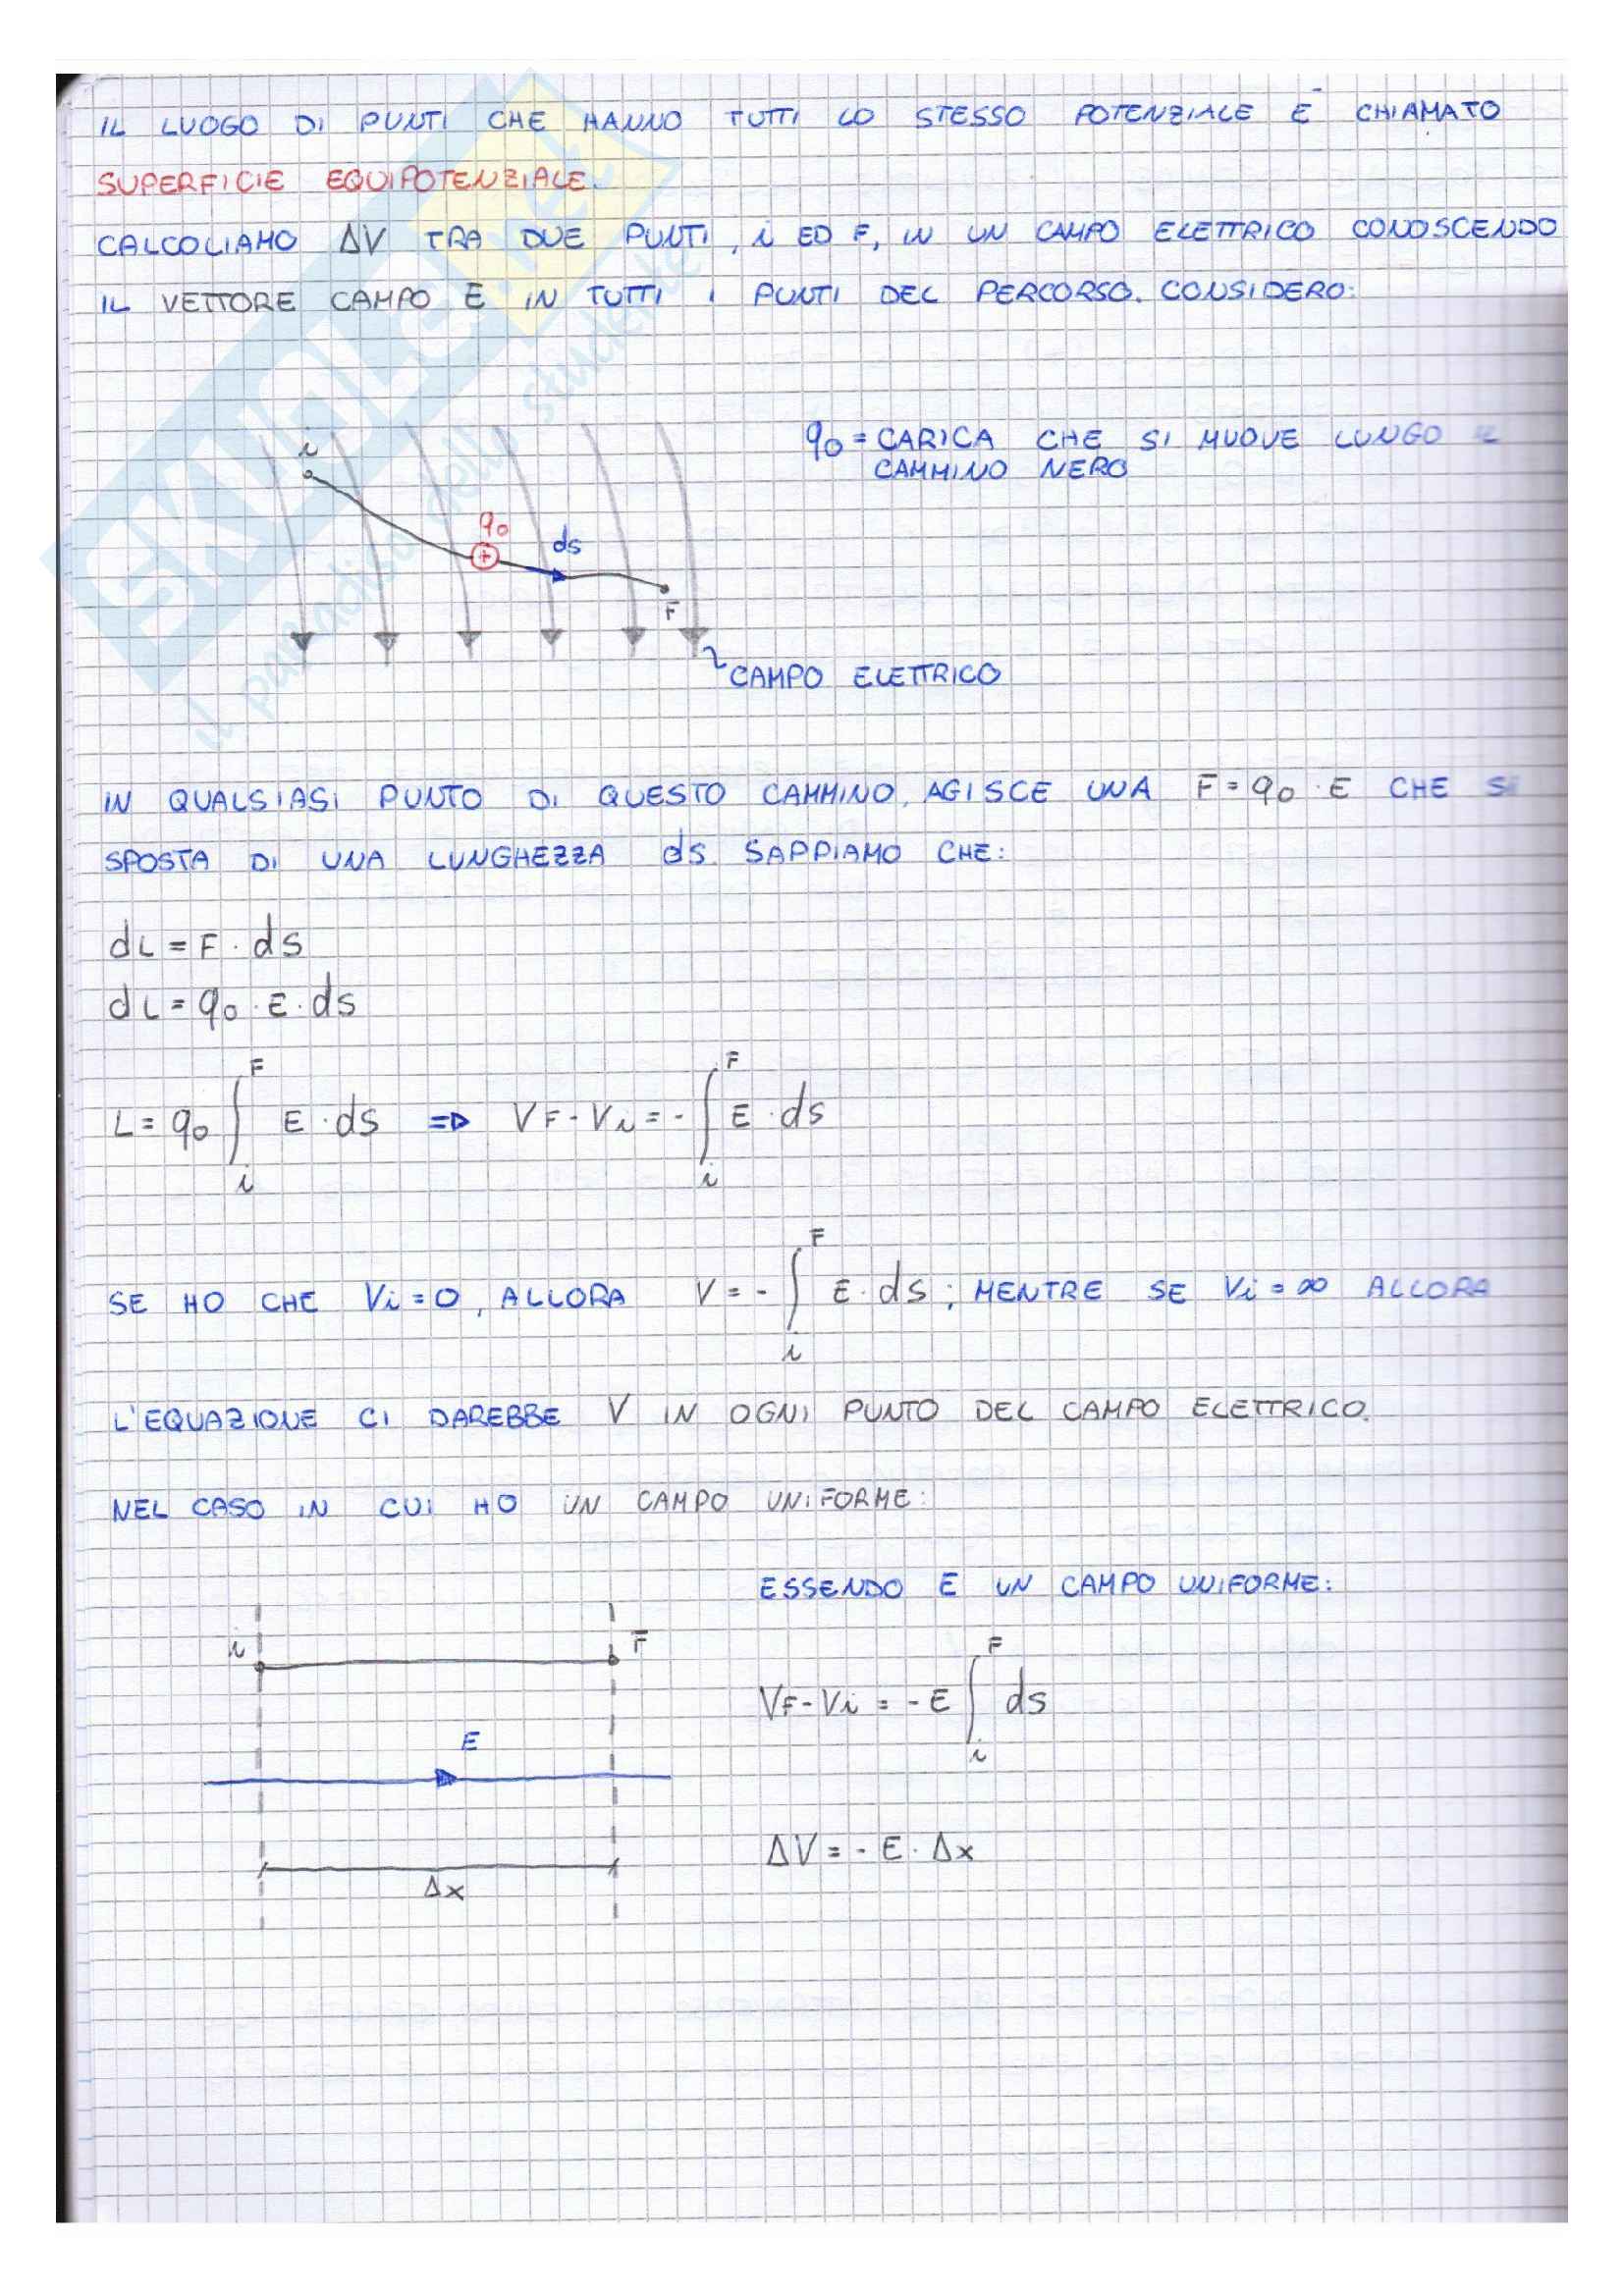 IL LUOGO DI PUNTI CHE HANNO TUTTI LO STESSO POTENZIALE È CHIAMATO
SUPERFICIE EQUIPOTENZIALE.
CALCOLIAMO ΔV TRA DUE PUNTI, i ED F, IN UN CAMPO ELETTRICO CONOSCENDO
IL VETTORE CAMPO E IN TUTTI I PUNTI DEL PERCORSO. CONSIDERO:
i
q₀ = CARICA CHE SI MUOVE LUNGO IL
CAMMINO NERO
q₀
+
ds
F
CAMPO ELETTRICO
IN QUALSIASI PUNTO DI QUESTO CAMMINO, AGISCE UNA F = q₀ · E CHE SI
SPOSTA DI UNA LUNGHEZZA ds. SAPPIAMO CHE:
dL = F · ds
dL = q₀ · E · ds
L = q₀ ∫ᵢᶠ E · ds ⇒ VF - Vi = - ∫ᵢᶠ E · ds
SE HO CHE Vi = 0, ALLORA V = - ∫ᵢᶠ E · ds; MENTRE SE Vi = ∞ ALLORA
L'EQUAZIONE CI DAREBBE V IN OGNI PUNTO DEL CAMPO ELETTRICO.
NEL CASO IN CUI HO UN CAMPO UNIFORME:
ESSENDO E UN CAMPO UNIFORME:
i F
VF - Vi = - E ∫ᵢᶠ ds
E
ΔV = - E · Δx
Δx
SKUOLA.NET
il paradiso dello studente